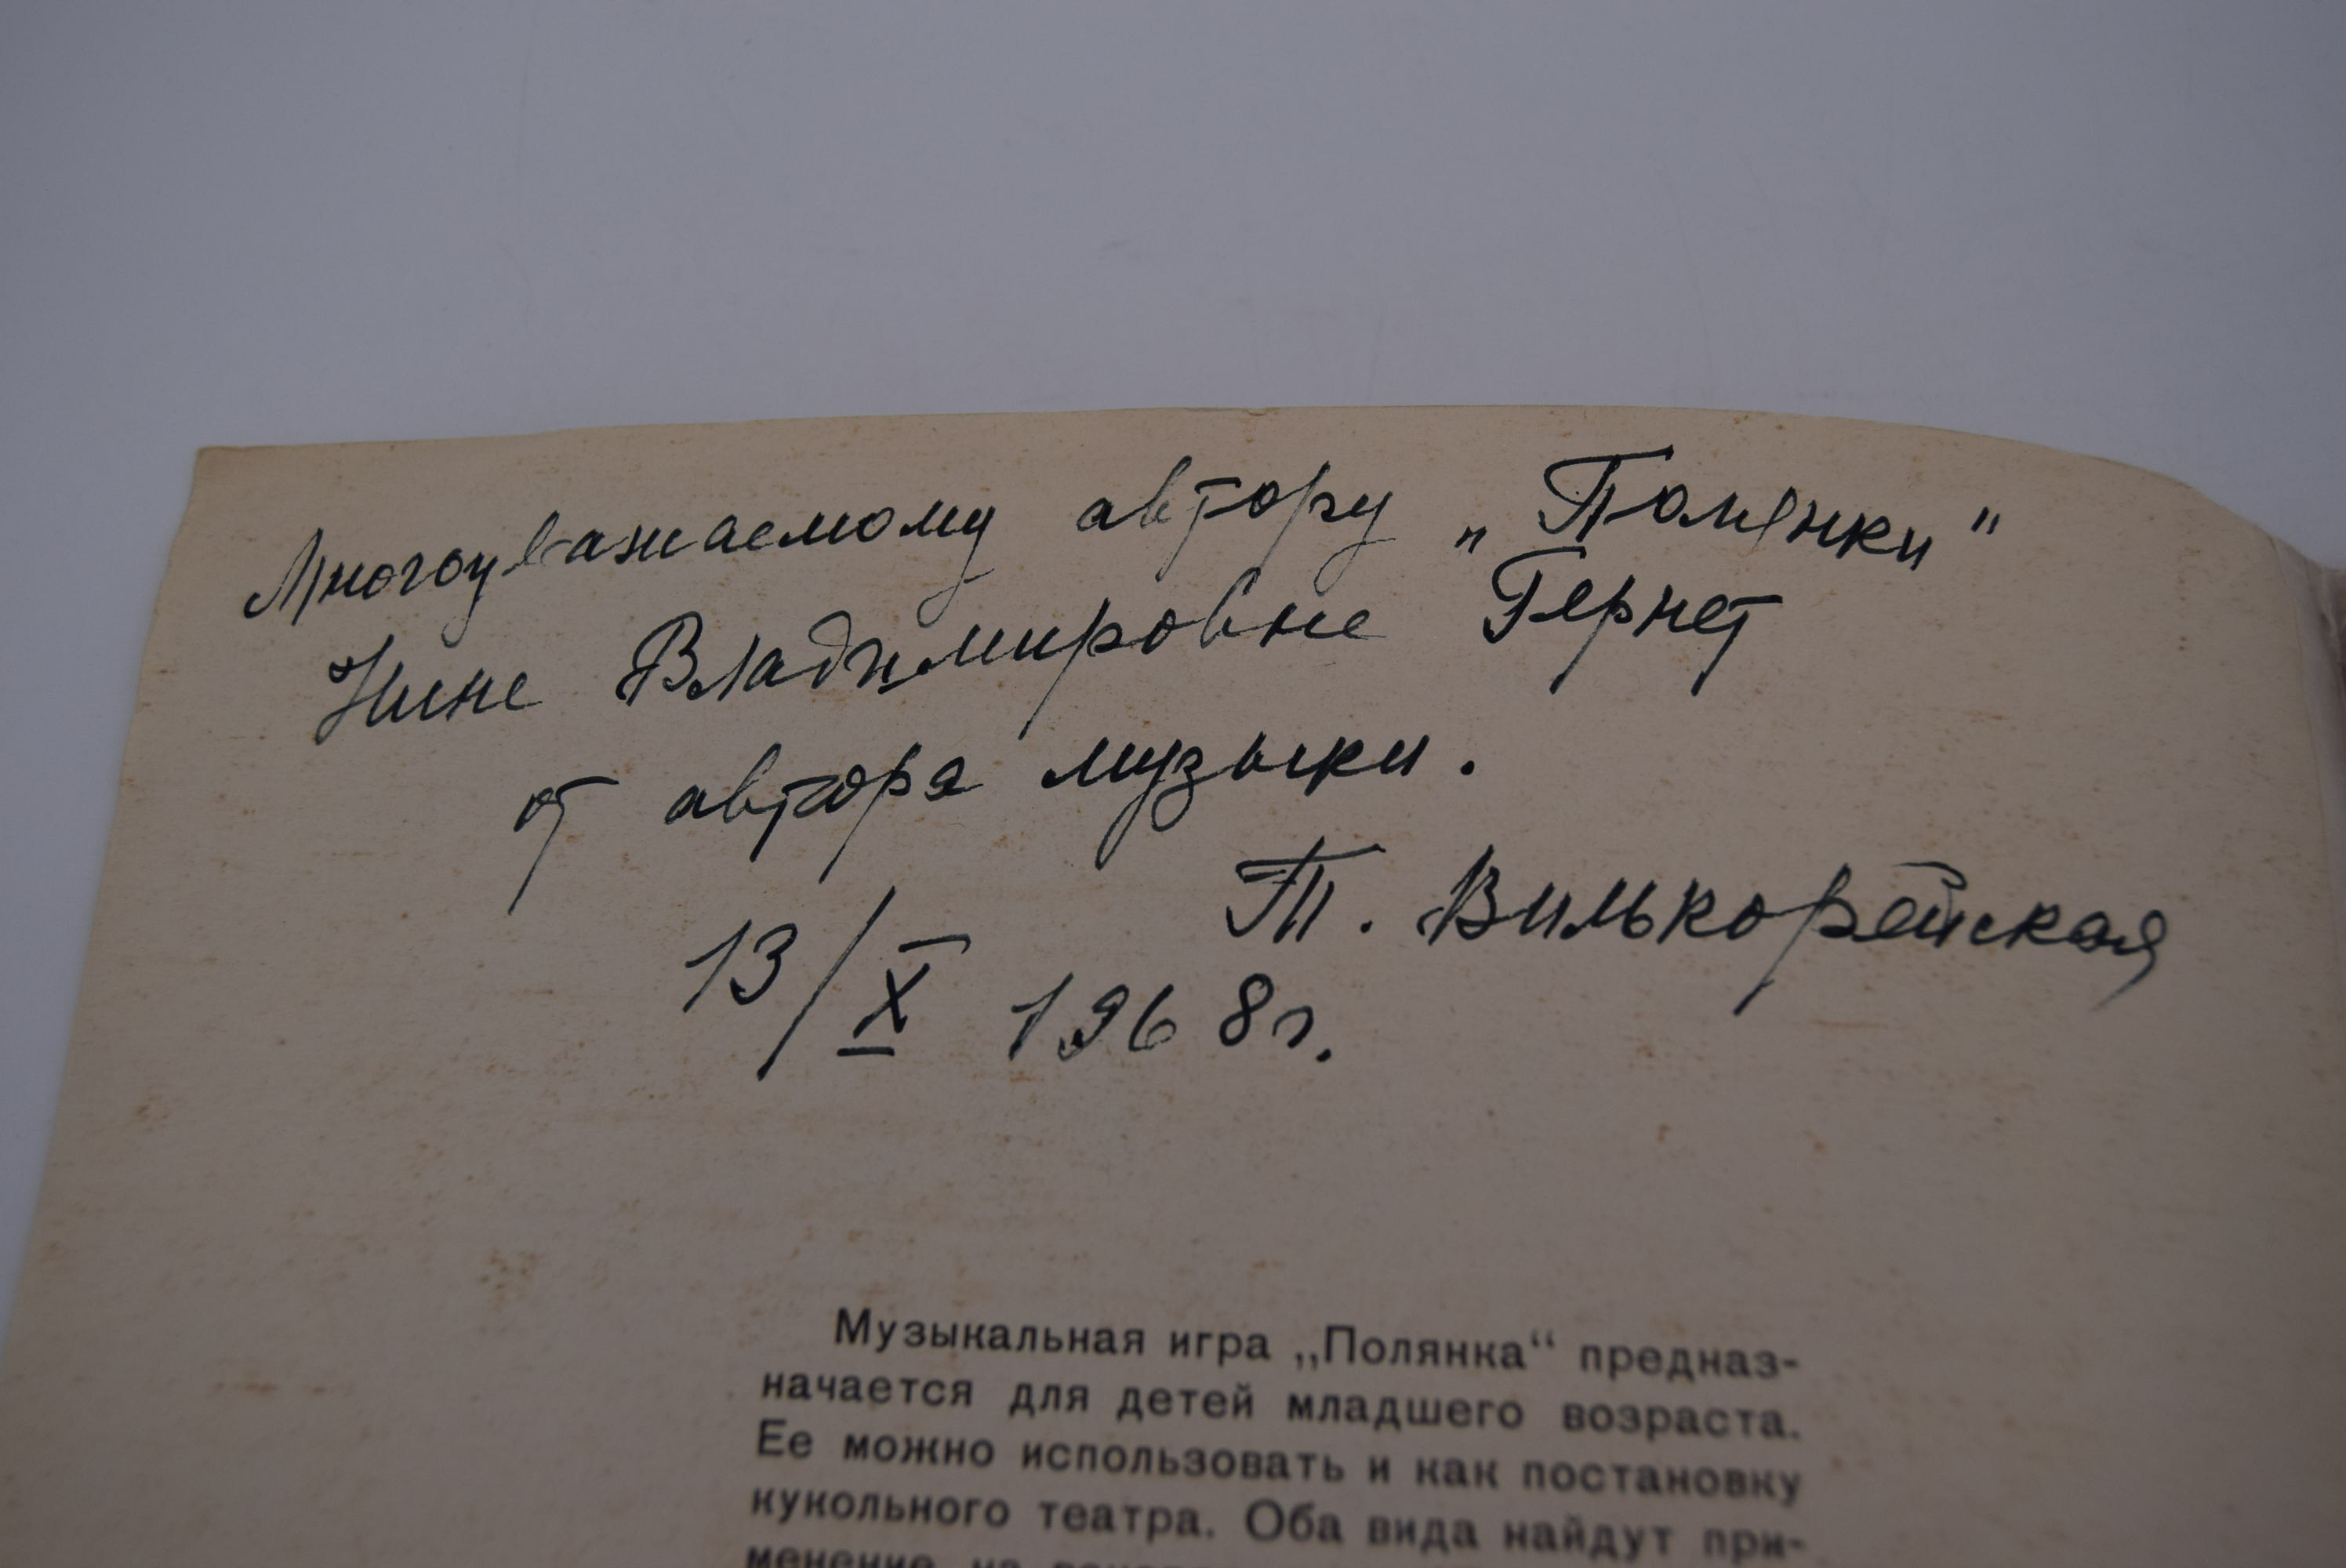 Многоуважаемому автору „Полянки"
Нине Владимировне Гернет
от автора музыки.
Т. Вилькорейская
13/X 1968г.
Музыкальная игра „Полянка“ предназ-
начается для детей младшего возраста.
Ее можно использовать и как постановку
кукольного театра. Оба вида найдут при-
менение на